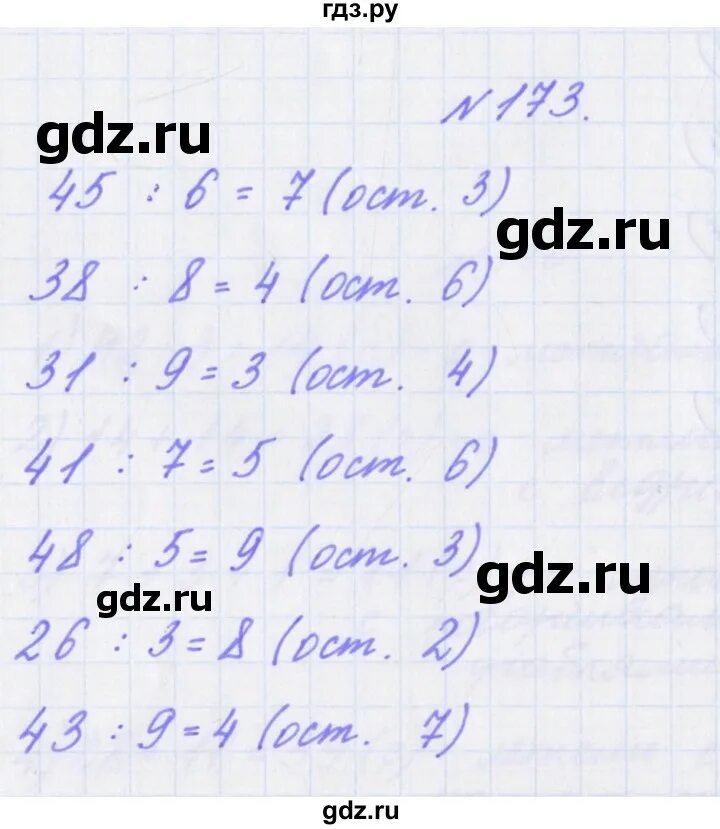 гдз.ру
№173.
gdz.ru
45 : 6 = 7 (ост. 3)
gdz.ru
38 : 8 = 4 (ост. 6)
31 : 9 = 3 (ост. 4)
41 : 7 = 5 (ост. 6)
48 : 5 = 9 (ост. 3)
gdz.ru
gdz.ru
26 : 3 = 8 (ост. 2)
43 : 9 = 4 (ост. 7)
gdz.ru